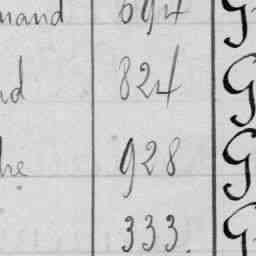 mand 694 G
d 824 G
he 928 G
333. G